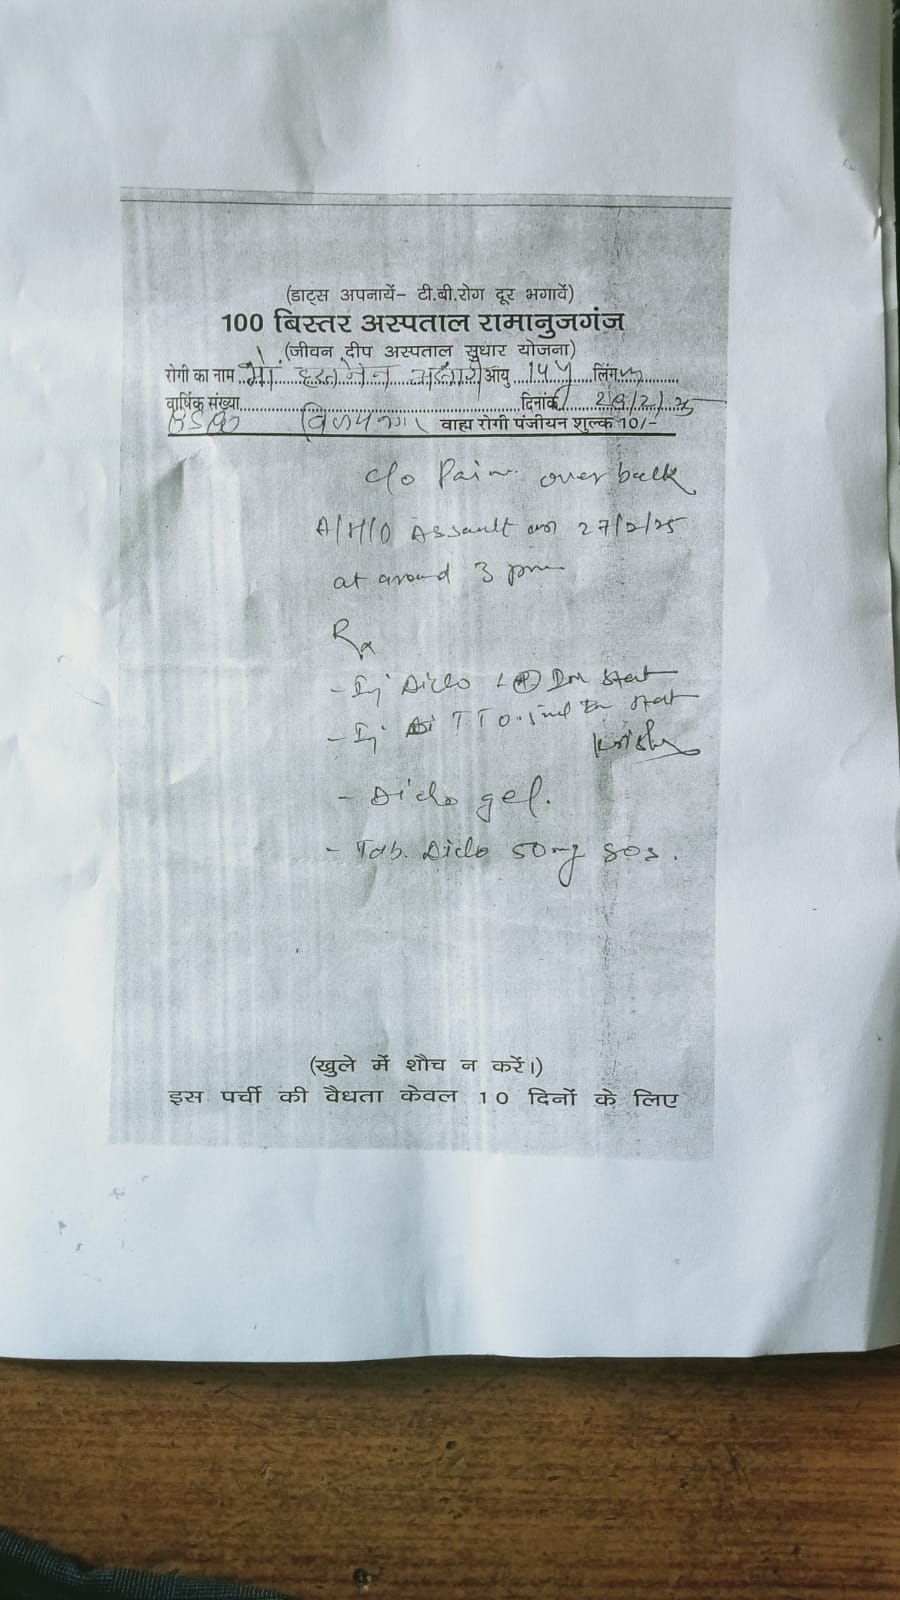 (डाट्स अपनायें– टी.बी.रोग दूर भगावें)
100 बिस्तर अस्पताल रामानुजगंज
(जीवन दीप अस्पताल सुधार योजना)
रोगी का नाम मो आयु 15 y लिंग
वार्षिक संख्या दिनांक 28/2/25
विजयनगर वाह्य रोगी पंजीयन शुल्क 10/-
c/o Pain over back
A/H/O Assault on 27/2/25
at around 3 pm
Rx
- Inj Diclo IM stat
- Inj TT 0.5ml Im stat
- Diclo gel.
- Tab. Diclo 50mg SOS.
(खुले में शौच न करें।)
इस पर्ची की वैधता केवल 10 दिनों के लिए